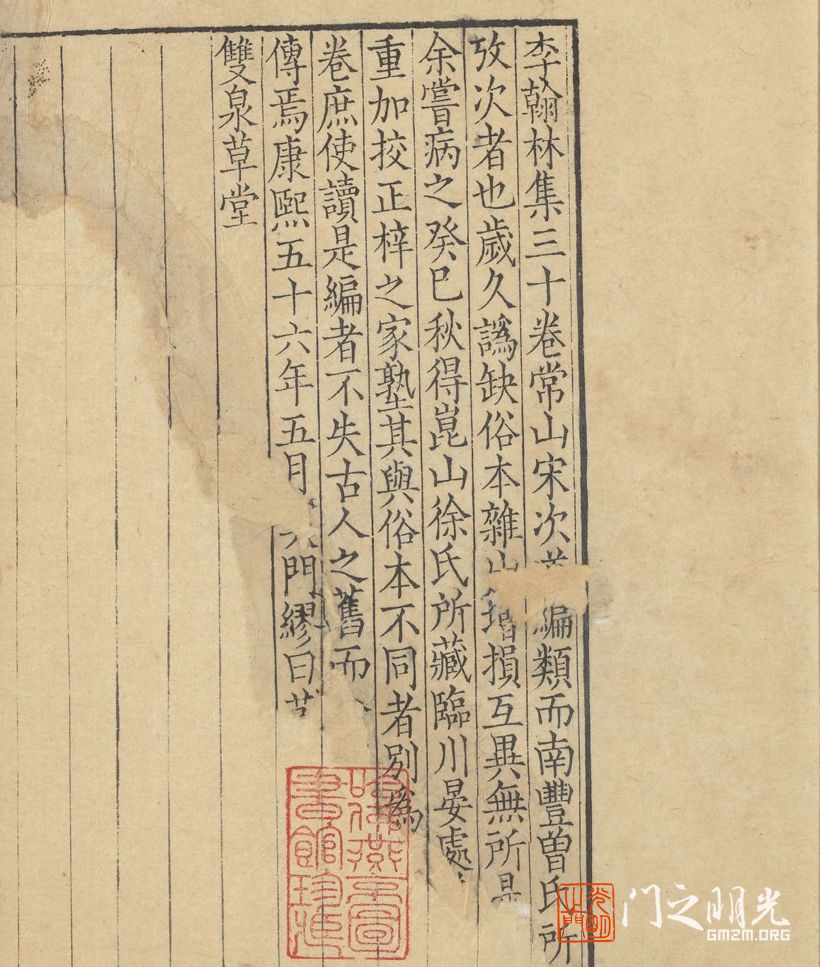 李翰林集三十卷常山宋次編類而南豐曾氏所
攷次者也歲久譌缺俗本雜增損互異無所
余嘗病之癸巳秋得崑山徐氏所藏臨川晏處
重加挍正梓之家塾其與俗本不同者別為
卷庶使讀是編者不失古人之舊而
傳焉康熙五十六年五月門繆曰
雙泉草堂
书館珍
门之明光
GMZM.ORG